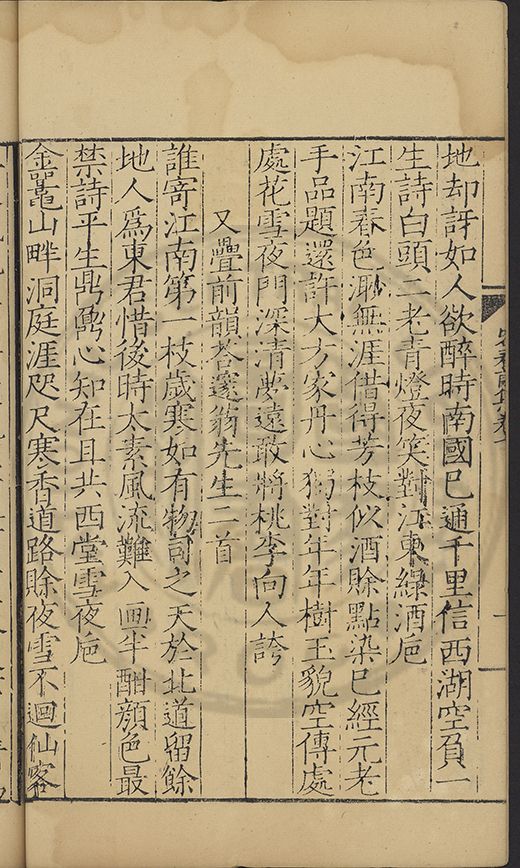 地却訝如人欲醉時南國已逋千里信西湖空負一
生詩白頭二老青燈夜笑對江東綠酒巵
江南春色渺無涯借得芳枝似酒賖點染已經元老
手品題還許大方家丹心獨對年年樹玉貌空傳處
處花雪夜門深清夢遠敢將桃李向人誇
又疊前韻荅邃翁先生二首
誰寄江南第一枝歲寒如有物司之天於北道留餘
地人爲東君惜後時太素風流難入画半酣顔色最
禁詩平生鼎鼐心知在且共西堂雪夜巵
金鼇山畔洞庭涯咫尺寒香道路賖夜雪不迴仙客